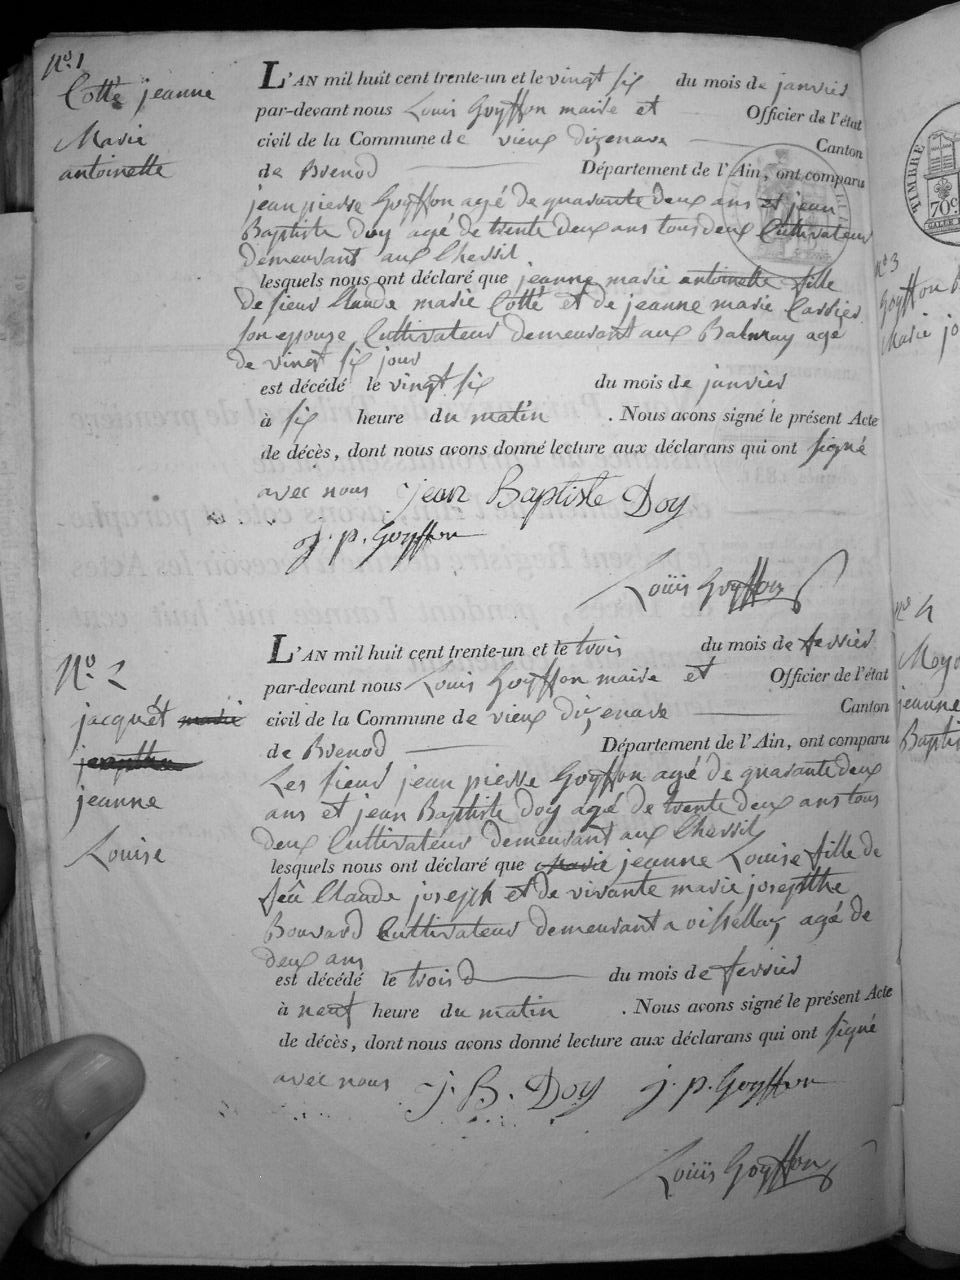 N.º 1
Cotte jeanne
Marie
antoinette
L'AN mil huit cent trente-un et le vingt six du mois de janvier
par-devant nous Louis Goyffon maire et Officier de l'état
civil de la Commune de vieux dizenave Canton
de Brenod Département de l'Ain, ont comparu
jean pierre Goyffon agé de quarante deux ans et jean
Baptiste Doy agé de trente deux ans tous deux Cultivateur
demeurant aux Chessil
lesquels nous ont déclaré que jeanne marie antoinette fille
de sieur Claude marie Cotte et de jeanne marie Carrier
son epouse Cultivateur demeurant aux Balmay agé
de vingt six jour
est décédé le vingt six du mois de janvier
à six heure du matin . Nous avons signé le présent Acte
de décès, dont nous avons donné lecture aux déclarans qui ont signé
avec nous jean Baptiste Doy
j. p. Goyffon
Louïs Goyffon
N.º 2
jacquet marie
jeanne
Louise
L'AN mil huit cent trente-un et le trois du mois de fevrier
par-devant nous Louis Goyffon maire et Officier de l'état
civil de la Commune de vieux dizenave Canton
de Brenod Département de l'Ain, ont comparu
Les sieur jean pierre Goyffon agé de quarante deux
ans et jean Baptiste doy agé de trente deux ans tous
deux Cultivateur demeurant aux Chessil
lesquels nous ont déclaré que marie jeanne Louise fille de
feu Claude joseph et de vivante marie josepthe
Bouvard Cultivateur demeurant a oissellaz agé de
deux ans
est décédé le trois du mois de fevrier
à neuf heure du matin . Nous avons signé le présent Acte
de décès, dont nous avons donné lecture aux déclarans qui ont signé
avec nous j. B. Doy j. p. Goyffon
Louïs Goyffon
TIMBRE
70c
nº 3
Goyffon
Marie jo
nº 4
jeanne
Baptis